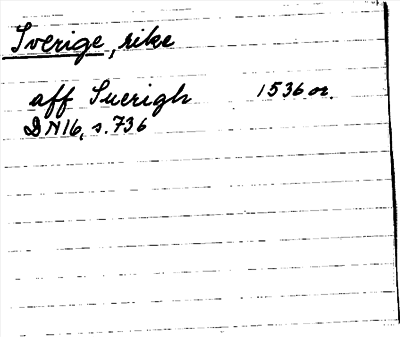 Sverige, rike
aff Suerigh 1536 or.
DN16, s. 736